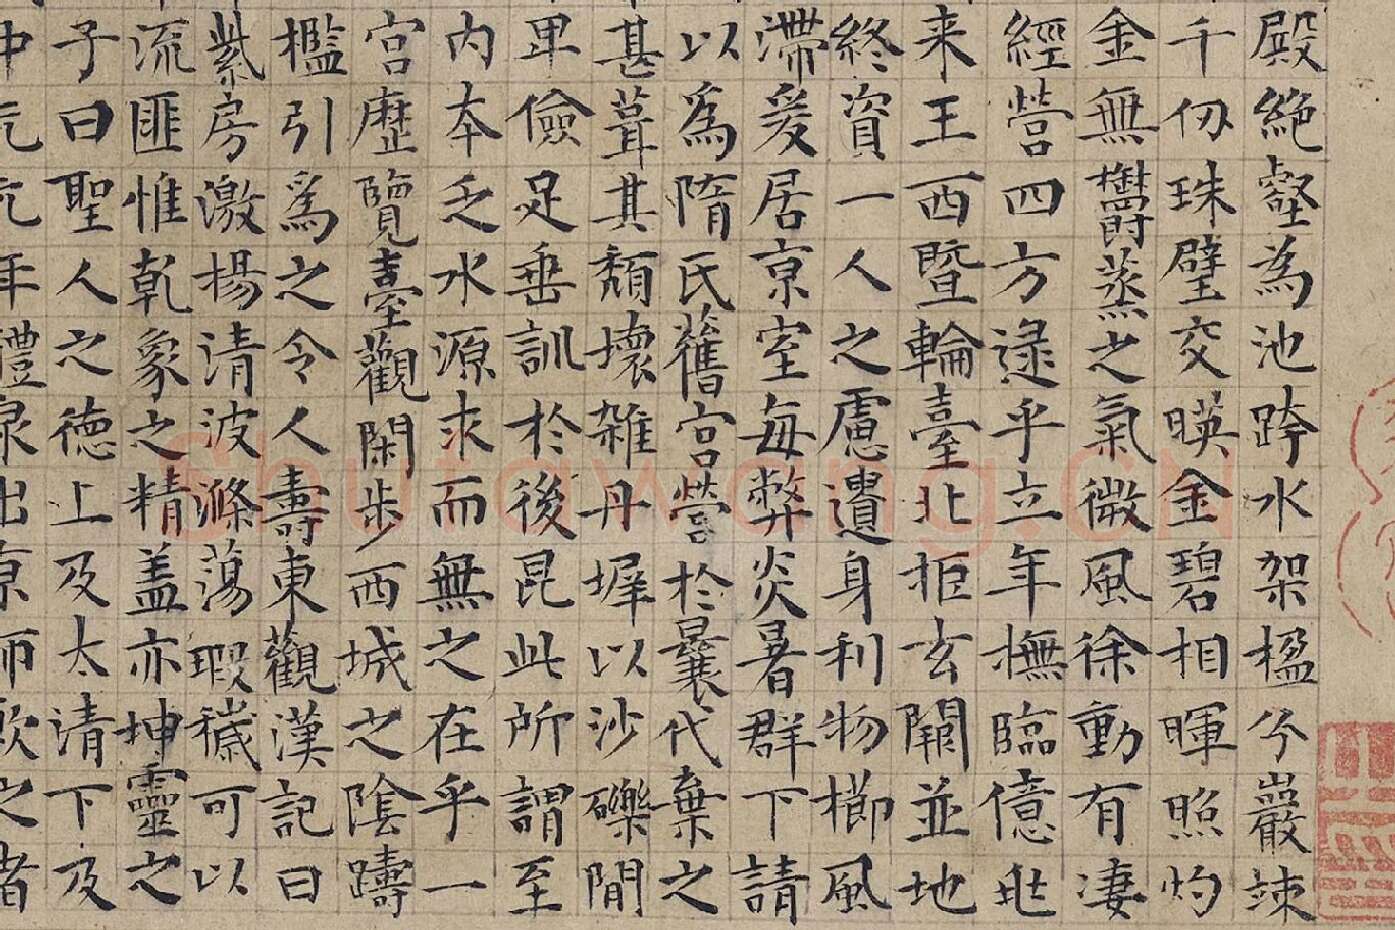 殿絶壑為池跨水架楹兮巖竦
千仞珠璧交暎金碧相暉照灼
金無欝蒸之氣微風徐動有凄
經營四方逯乎立年撫臨億兆
来王西暨輪臺北拒玄闕並地
終資一人之慮遺身利物櫛風
滯爰居京室每弊炎暑群下請
以為隋氏舊宮營於曩代棄之
甚葺其頽壞雜丹墀以沙礫間
卑儉足垂訓於後昆此所謂至
内本乏水源求而無之在乎一
宮歷覽臺觀閑步西城之陰躊
檻引為之令人壽東觀漢記曰
紫房激揚清波滌蕩瑕穢可以
流匪惟乾象之精盖亦坤靈之
子曰聖人之德上及太清下及
中元元年醴泉出京師飲之者
Shufawang.CN